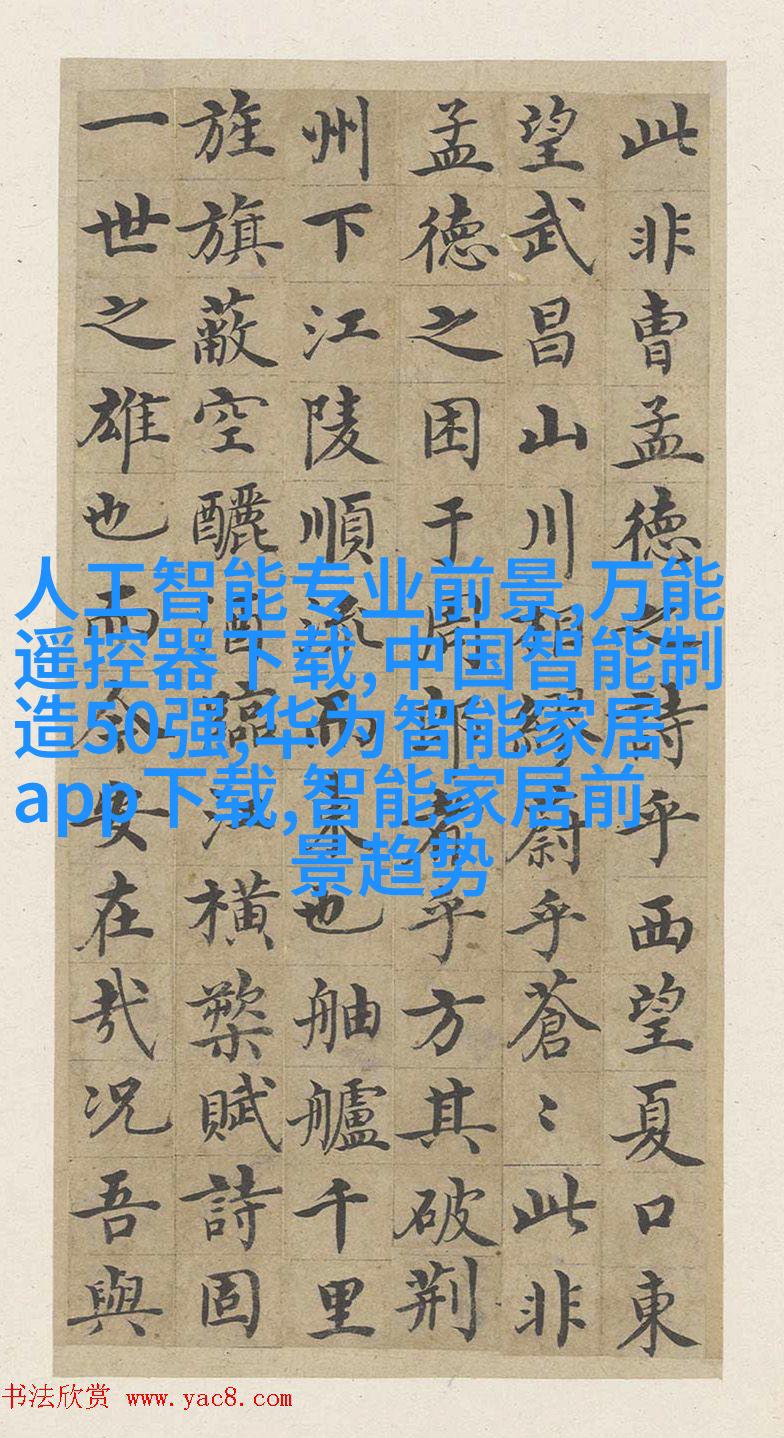 此非曹孟德之詩乎西望夏口東
望武昌山川相繆蔚乎蒼〻此非
孟德之困于周郎者乎方其破荆
州下江陵順流而東也舳艫千里
旌旗蔽空釃酒臨江横槊賦詩固
一世之雄也而今安在哉况吾與
人工智能专业前景,万能
遥控器下载,中国智能制
造50强,华为智能家居
app下载,智能家居前
景趋势
书法欣赏 www.yac8.com